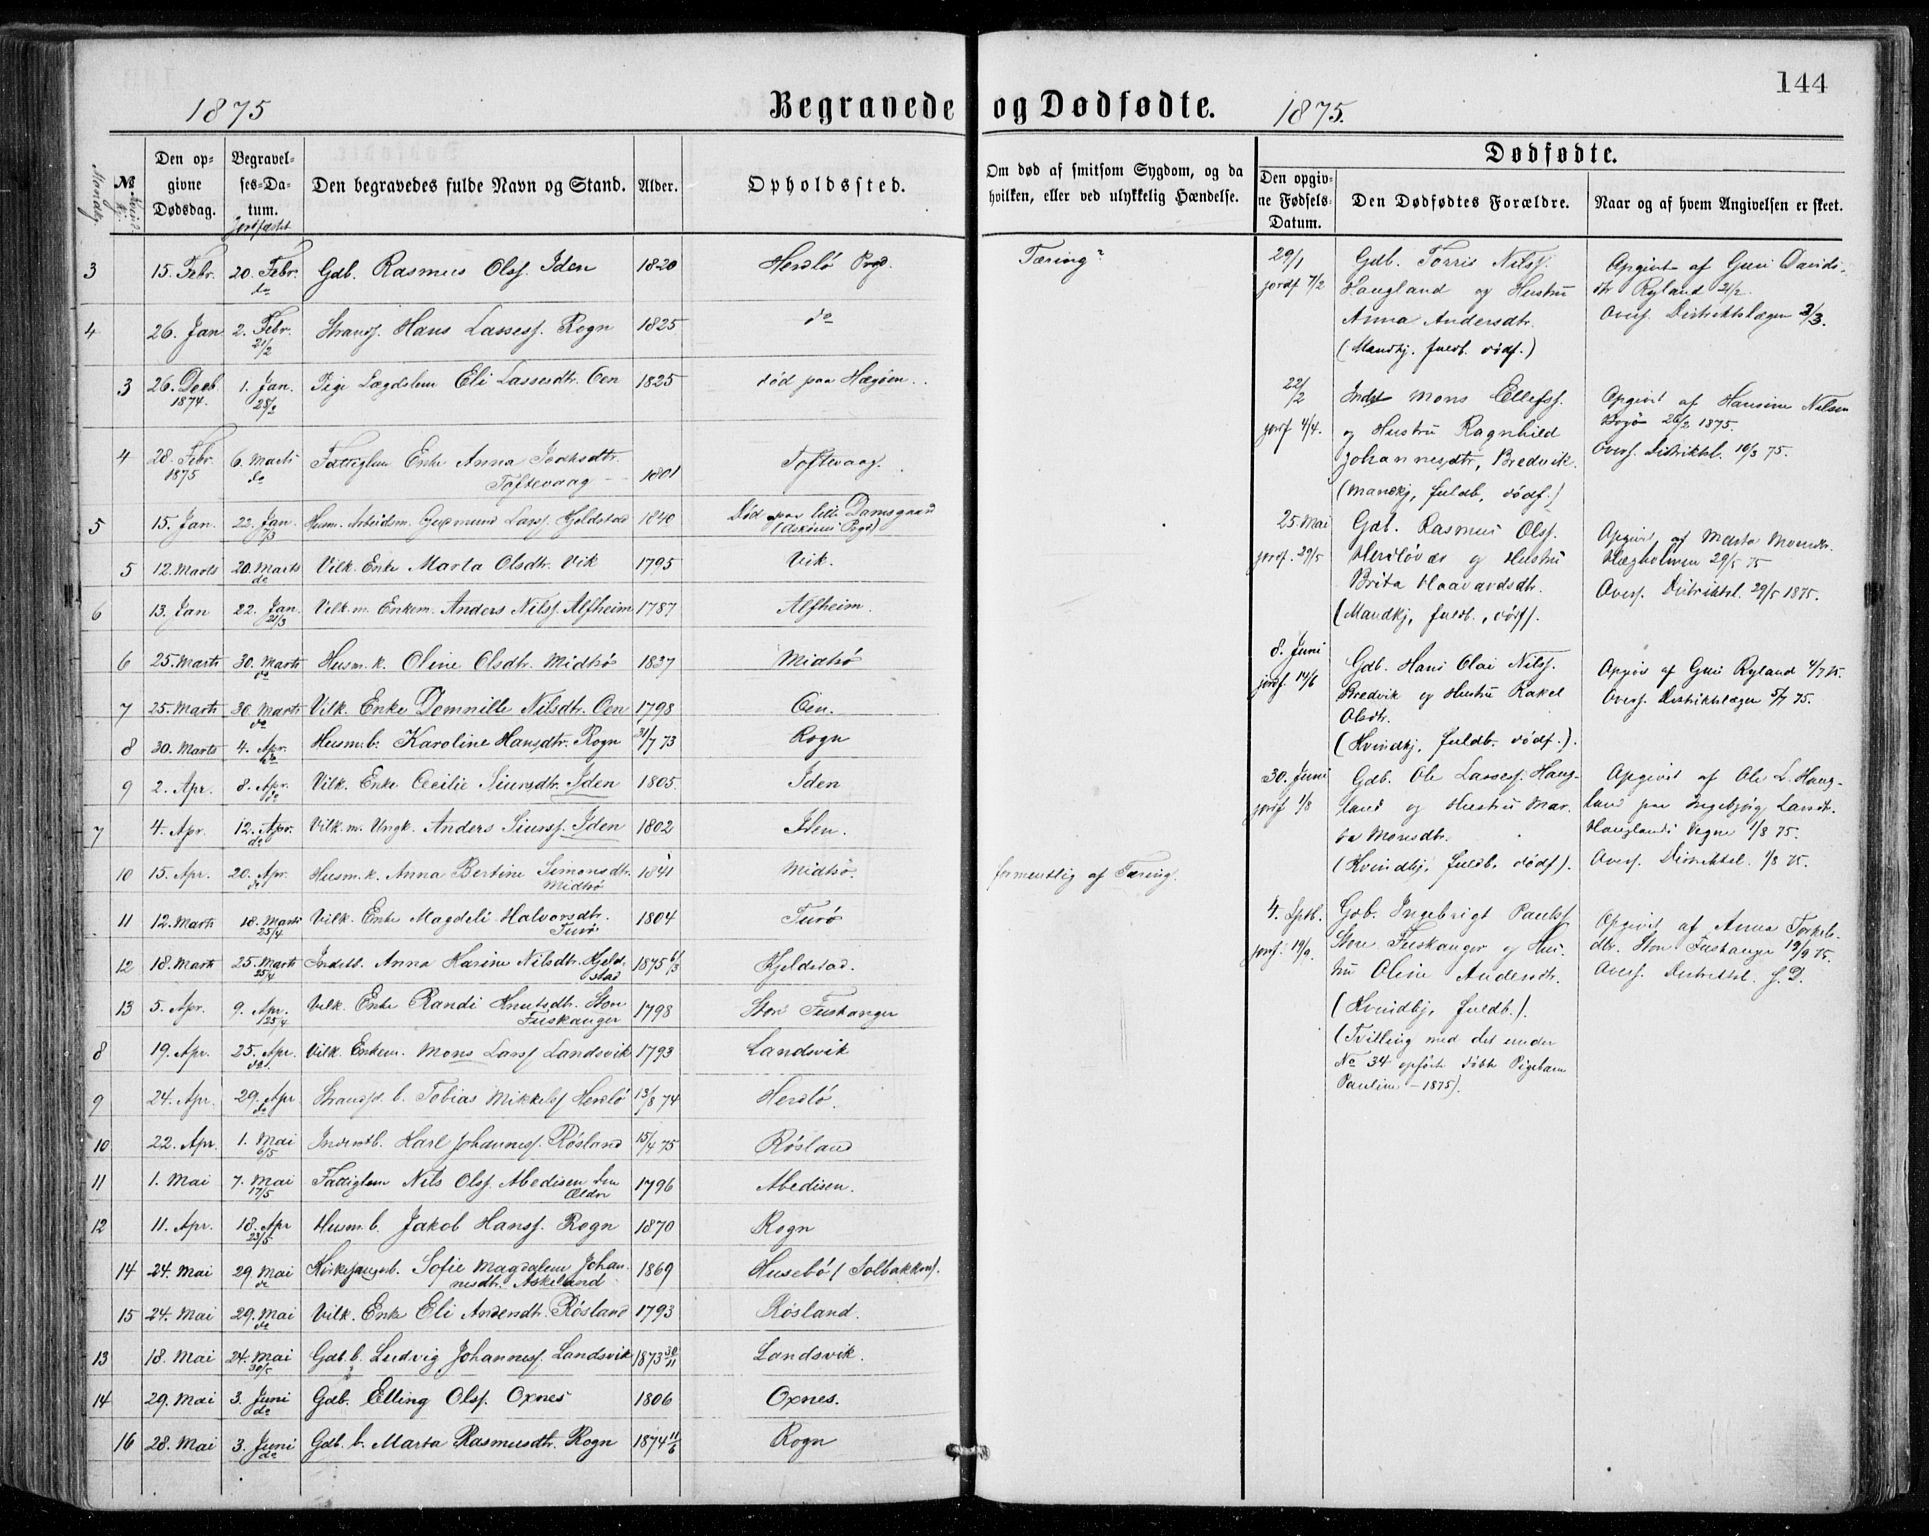 144
1875 Begravede og Dødfødte. 1875.
Mandkj. No. Kvindekj.
Den opgivne Dødsdag. Begravelses-Datum. Jordfæstet Den begravedes fulde Navn og Stand. Alder. Opholdssted.
Om død af smitsom Sygdom, og da hvilken, eller ved ulykkelig Hændelse.
Dødfødte.
Den opgivne Fødsels-Datum. Den Dødfødtes Forældre. Naar og af hvem Angivelsen er skeet.
3 15. Febr. 20. Febr. do Gdb. Rasmus Olsf. Iden 1820 Herdlö Prgd. Tæring?
4 26. Jan 2. Febr. 21/2 Strands. Hans Lassesf. Rogn 1825 do
3 26. Decb. 1874. 1. Jan. 28/2 Pige Lægdslem Eli Lassesdtr. Oen 1825 død paa Hægöen.
4 28. Febr. 1875 6. Marts do Fattiglem Enke Anna Toftevaag 1801 Toftevaag.
5 15. Jan. 22. Jan. 7/3 Husm. Arbeidsm. Larsf. Kjeldstad 1840 Død paa lille Damsgaard (Askøens Prgd)
5 12. Marts 20. Marts do Vilk. Enke Marta Olsdtr. Vik 1795 Vik.
6 13. Jan 22. Jan 21/3 Vilk. m. Enkem. Anders Nilsf. Alfheim 1787 Alfheim.
6 25. Marts 30. Marts do Husm. k. Oline Olsdtr. Midtsö 1837 Midtsö
7 25. Marts 30. Marts do Vilk. Enke Demnille Nilsdtr. Oen 1798 Oen.
8 30. Marts 4. Apr. do Husm. b. Karoline Hansdtr. Rogn 31/7 73 Rogn
9 2. Apr. 8. Apr. do Vilk. Enke Cecilie Siursdtr. Iden 1805. Iden
7 4. Apr. 12. Apr. do Vilk. m. Ungk. Anders Siursf. Iden 1802 Iden.
10 15. Apr. 20. Apr. do Husm. k. Anna Bertine Simonsdtr. Midtsö 1841 Midtsö. formentlig af Tæring.
11 12. Marts 18. Marts 25/4 Vilk. Enke Magdeli Halvorsdtr. Turö 1804 Turö
12 18. Marts 25. Marts 25/4 Inderb. Anna Karine Nilsdtr. Kjeldstad 1875 6/3 Kjeldstad.
13 5. Apr. 9. Apr. 25/4 Vilk. Enke Randi Knutsdtr. Store Fuskanger 1798 Store Fuskanger
8 19. Apr. 25. Apr. do Vilk. Enkem. Mons Larsf. Landsvik 1793 Landsvik
9 24. Apr. 29. Apr do Strands. b. Tobias Mikkelsf. Herdlö 13/8 74 Herdlö.
10 22. Apr. 1. Mai 6/5 Inderstb. Karl Johannesf. Røsland 15/4 75 Røsland
11 1. Mai 7. Mai 17/5 Fattiglem Nils Olsf. Abedisen den Ældre 1796 Abedisen.
12 11. Apr. 18. Apr 23/5 Husm. b. Jakob Hansf. Rogn 1870 Rogn
14 24. Mai 29. Mai do Kirkesangerb. Sofie Magdalene Johannesdtr. Askeland 1869 Husebö (Solbakken).
15 24. Mai 29. Mai do Vilk. Enke Eli Andersdtr. Røsland 1793 Røsland.
13 18. Mai 24. Mai 30/5 Gdb. b. Ludvig Johannesf. Landsvik 1873 30/11 Landsvik.
14 29. Mai 3. Juni do Gdb. Elling Olsf. Oxnes 1806 Oxnes.
16 28. Mai 3. Juni do Gdb. b. Marta Rasmusdtr. Rogn 1874 11/6 Rogn
29/1 jordf. 7/2 Gdb. Torris Nilsf. Haugland og Hustru Anna Andersdtr. (Mandkj. fuldb. dödf.)
Opgivet af Guri Davidsdtr Ryland 21/2. Overf. Distriktslægen 3/3.
22/2 jordf. 4/4. Inderst Mons Ellefsf. og Hustru Ragnhild Johannesdtr, Bredvik. (Mandkj, fuldb, dödf.)
Opgivet af Hansine Nilsen 26/2 1875. Overf. Distriktsl. 10/3 75.
25. Mai jordf. 29/5 Gdb. Rasmus Olsf. Herdlövær og Hustru Brita Haavardsdtr. (Mandkj, fuldb., dödf).
Opgivet af Marta Monsdtr. Hægholmen 29/5 75 Overf. Distriktsl. 29/5 1875.
8. Juni jordf. 14/6 Gdb. Hans Olai Nilsf. Bredvik og Hustru Rakel Olsdtr. (Kvindkj, fuldb. dödf.).
Opgivet af Guri Ryland 4/7 75. Overf. Distriktslægen 5/7 75.
30. Juni jordf. 1/8 Gdb. Ole Lassesf. Haugland og Hustru Marta Monsdtr. (Kvindkj, fuldb, dödf).
Opgivet af Ole L. Haugland paa Ingebjörg Larsdtr. Hauglands Vegne 1/8 75. Overf. Distriktsl. 1/8 75.
4. Sptb. jordf. 19/9. Gdb. Ingebrigt Paulsf. Store Fuskanger og Hustru Oline Andersdtr. (Kvindkj, fuldb.). (Tvilling med det under No 34 opförte döbte Pigebarn Pauline – 1875).
Opgivet af Anna Torkelsdtr. Store Fuskanger 19/9 75. Overf. Distriktsl. s. D.